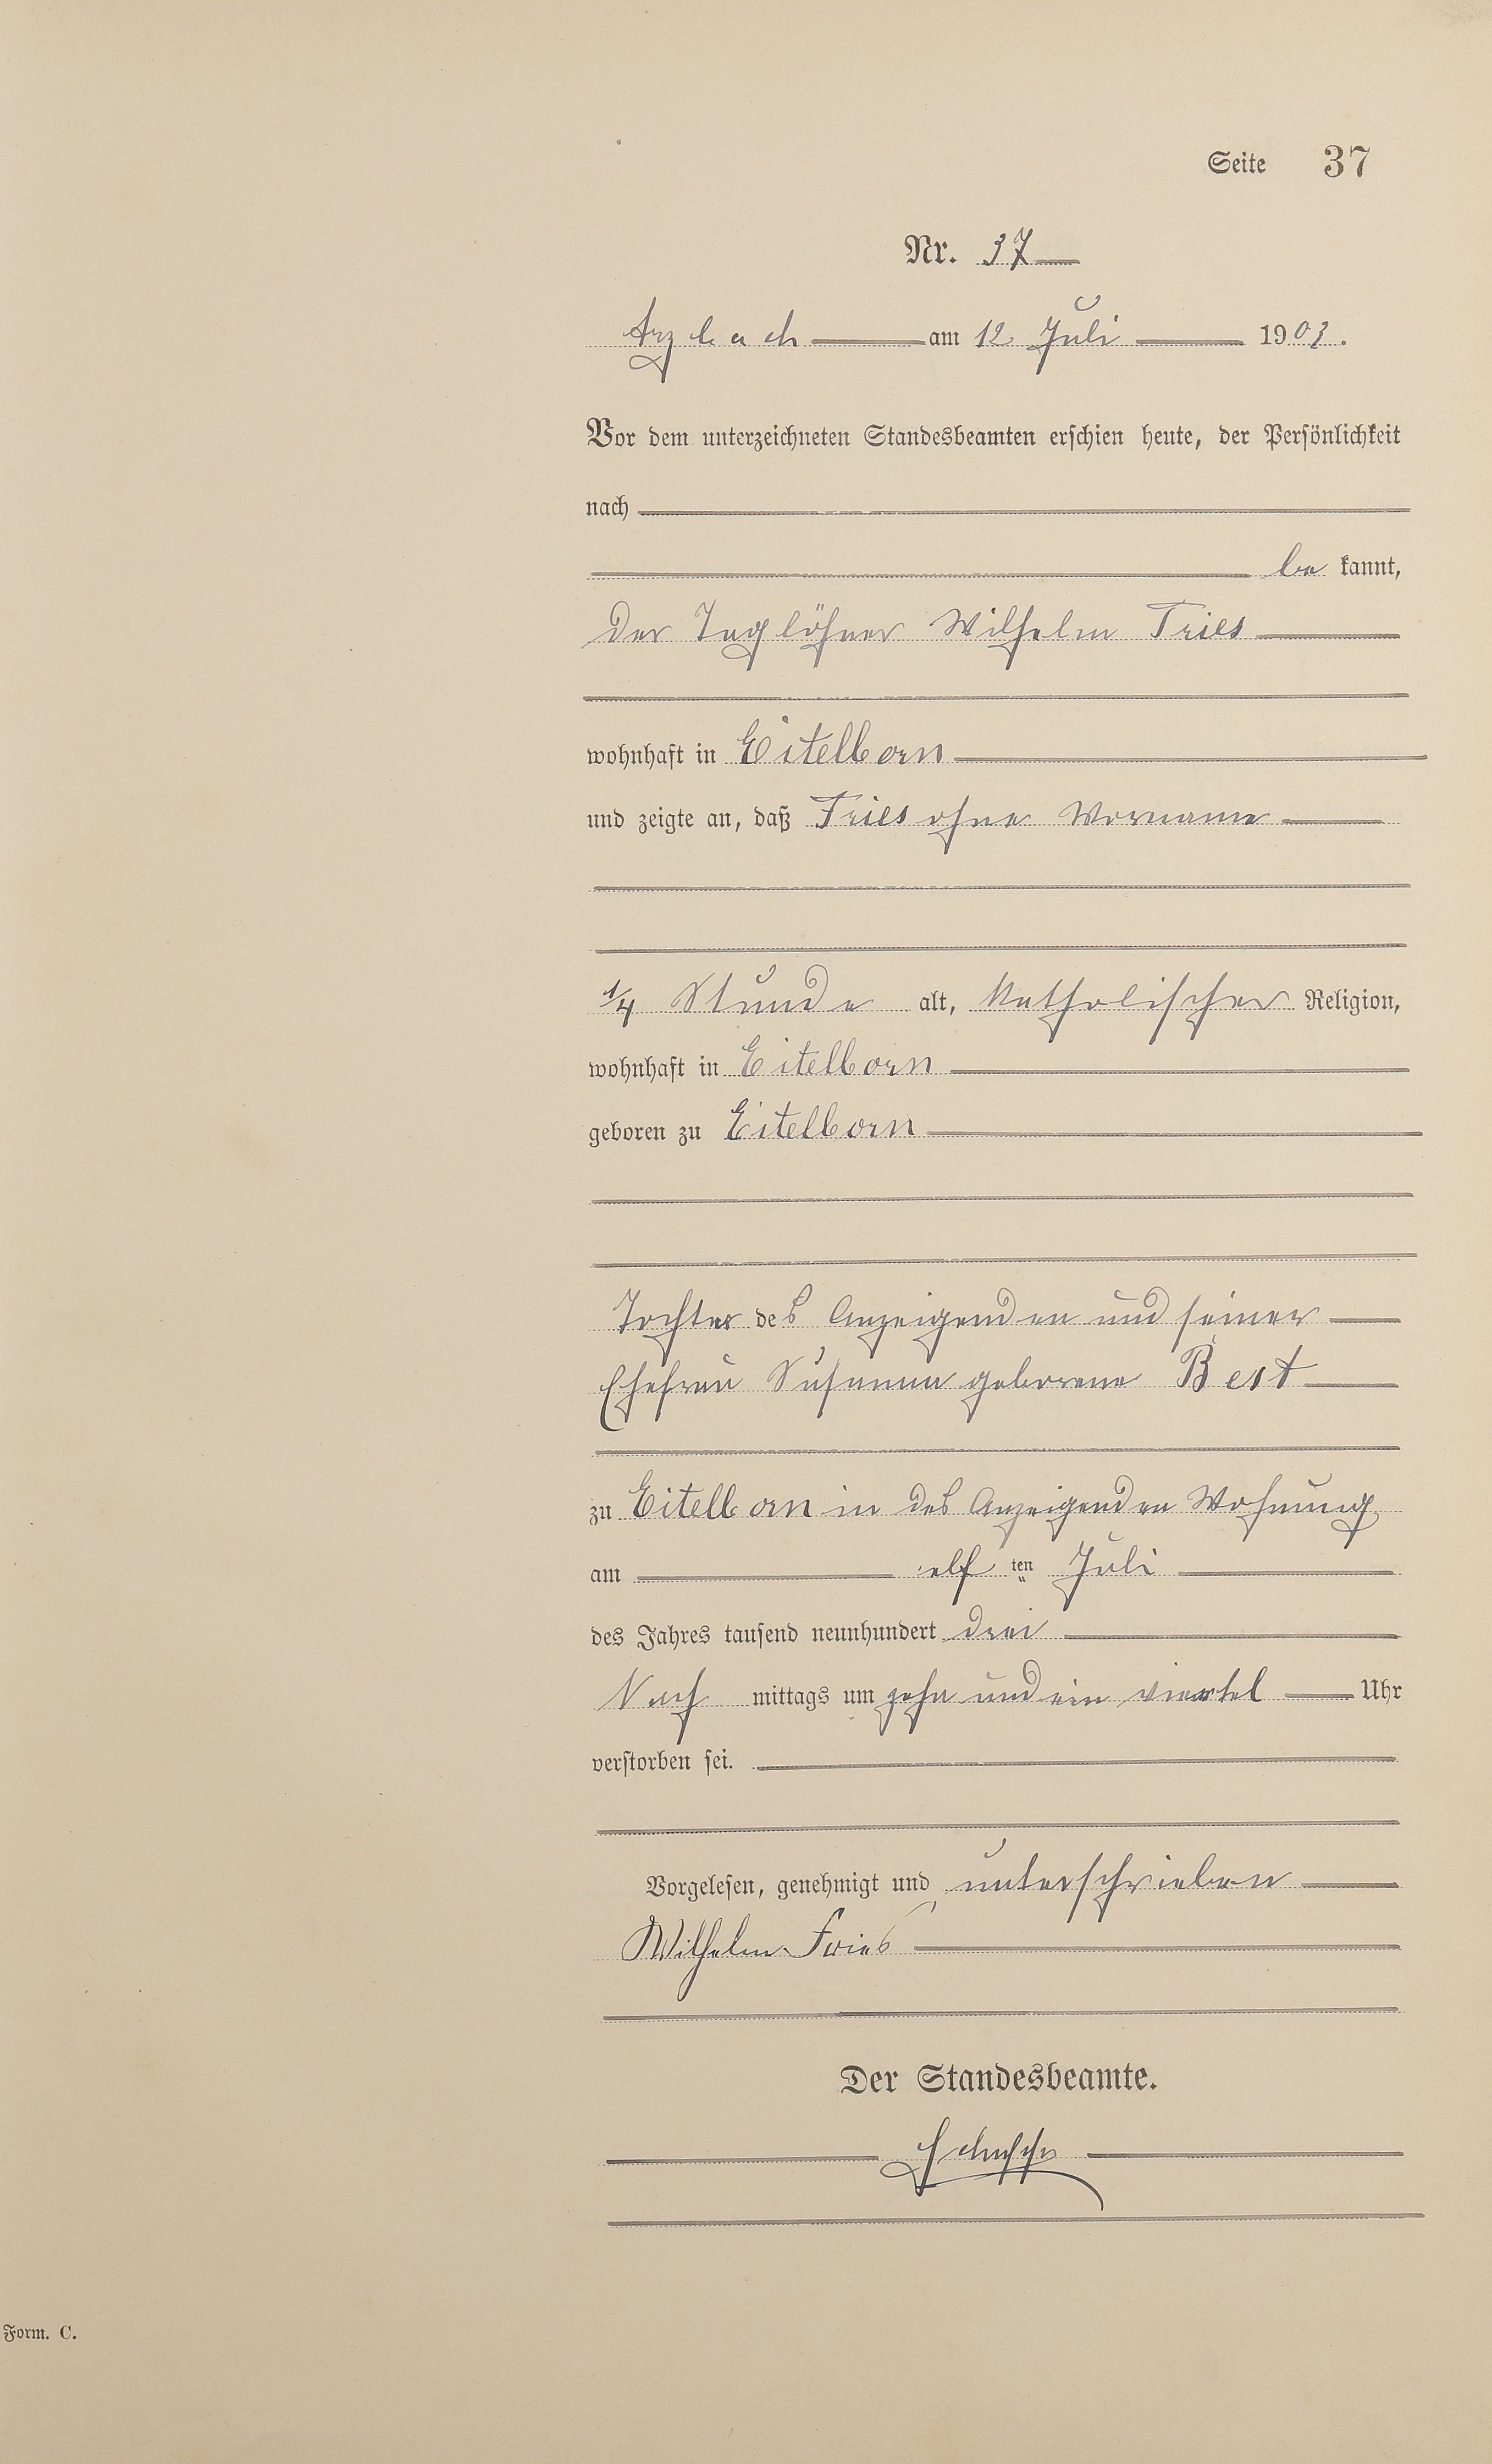 Seite 37
Nr. 37
Arzbach am 12 Juli 1903.
Vor dem unterzeichneten Standesbeamten erschien heute, der Persönlichkeit
nach
be kannt,
der Taglöhner Wilhelm Fries
wohnhaft in Eitelborn
und zeigte an, daß Fries ohne Vorname
1/4 Stunde alt, katholischer Religion,
wohnhaft in Eitelborn
geboren zu Eitelborn
Tochter des Anzeigenden und seiner
Ehefrau Susanna geborene Best
zu Eitelborn in des Anzeigenden Wohnung
am elf ten Juli
des Jahres tausend neunhundert drei
Nach mittags um zehn und ein viertel Uhr
verstorben sei.
Vorgelesen, genehmigt und unterschrieben
Wilhelm Fries
Der Standesbeamte.
Form. C.